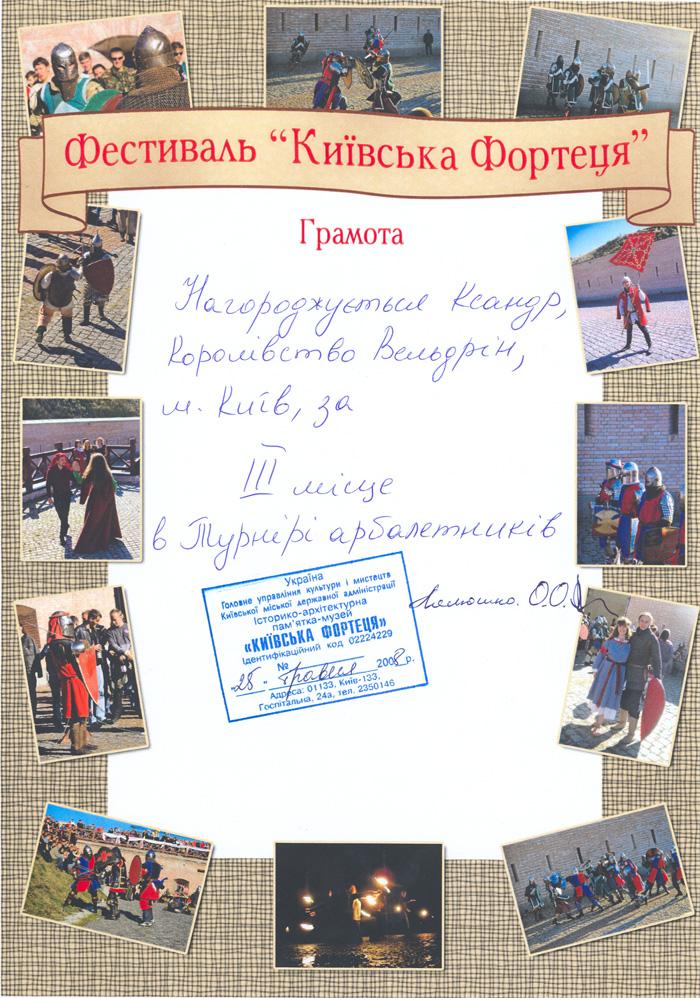 Фестиваль “Київська Фортеця”
Грамота
Нагороджується Ксандр,
Королівство Вельдрін,
м. Київ, за
III місце
в Турнірі арбалетників
Україна
Головне управління культури і мистецтв
Київської міської державної адміністрації
Історико-архітектурна
пам'ятка-музей
«КИЇВСЬКА ФОРТЕЦЯ»
Ідентифікаційний код 02224229
№
„ “ травня 2008 р.
Адреса: 01133, Київ-133,
Госпітальна, 24а, тел. 2350146
О.О.